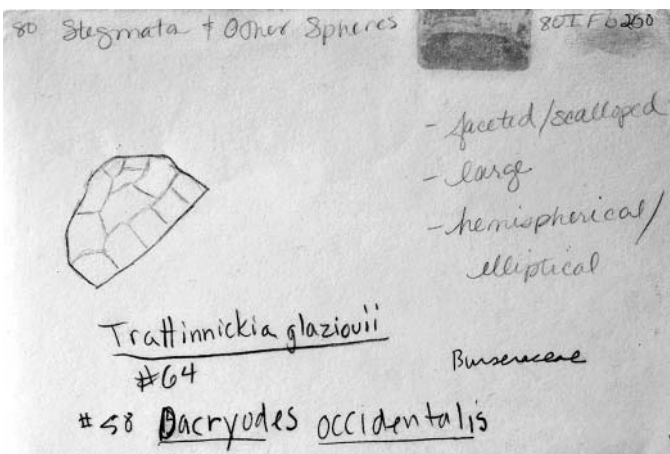 80 Stegmata + Other Spheres 80IFb200
- faceted/scalloped
- large
- hemispherical/
elliptical
Trattinnickia glaziouii
#64
Burseraceae
#58 Dacryodes occidentalis